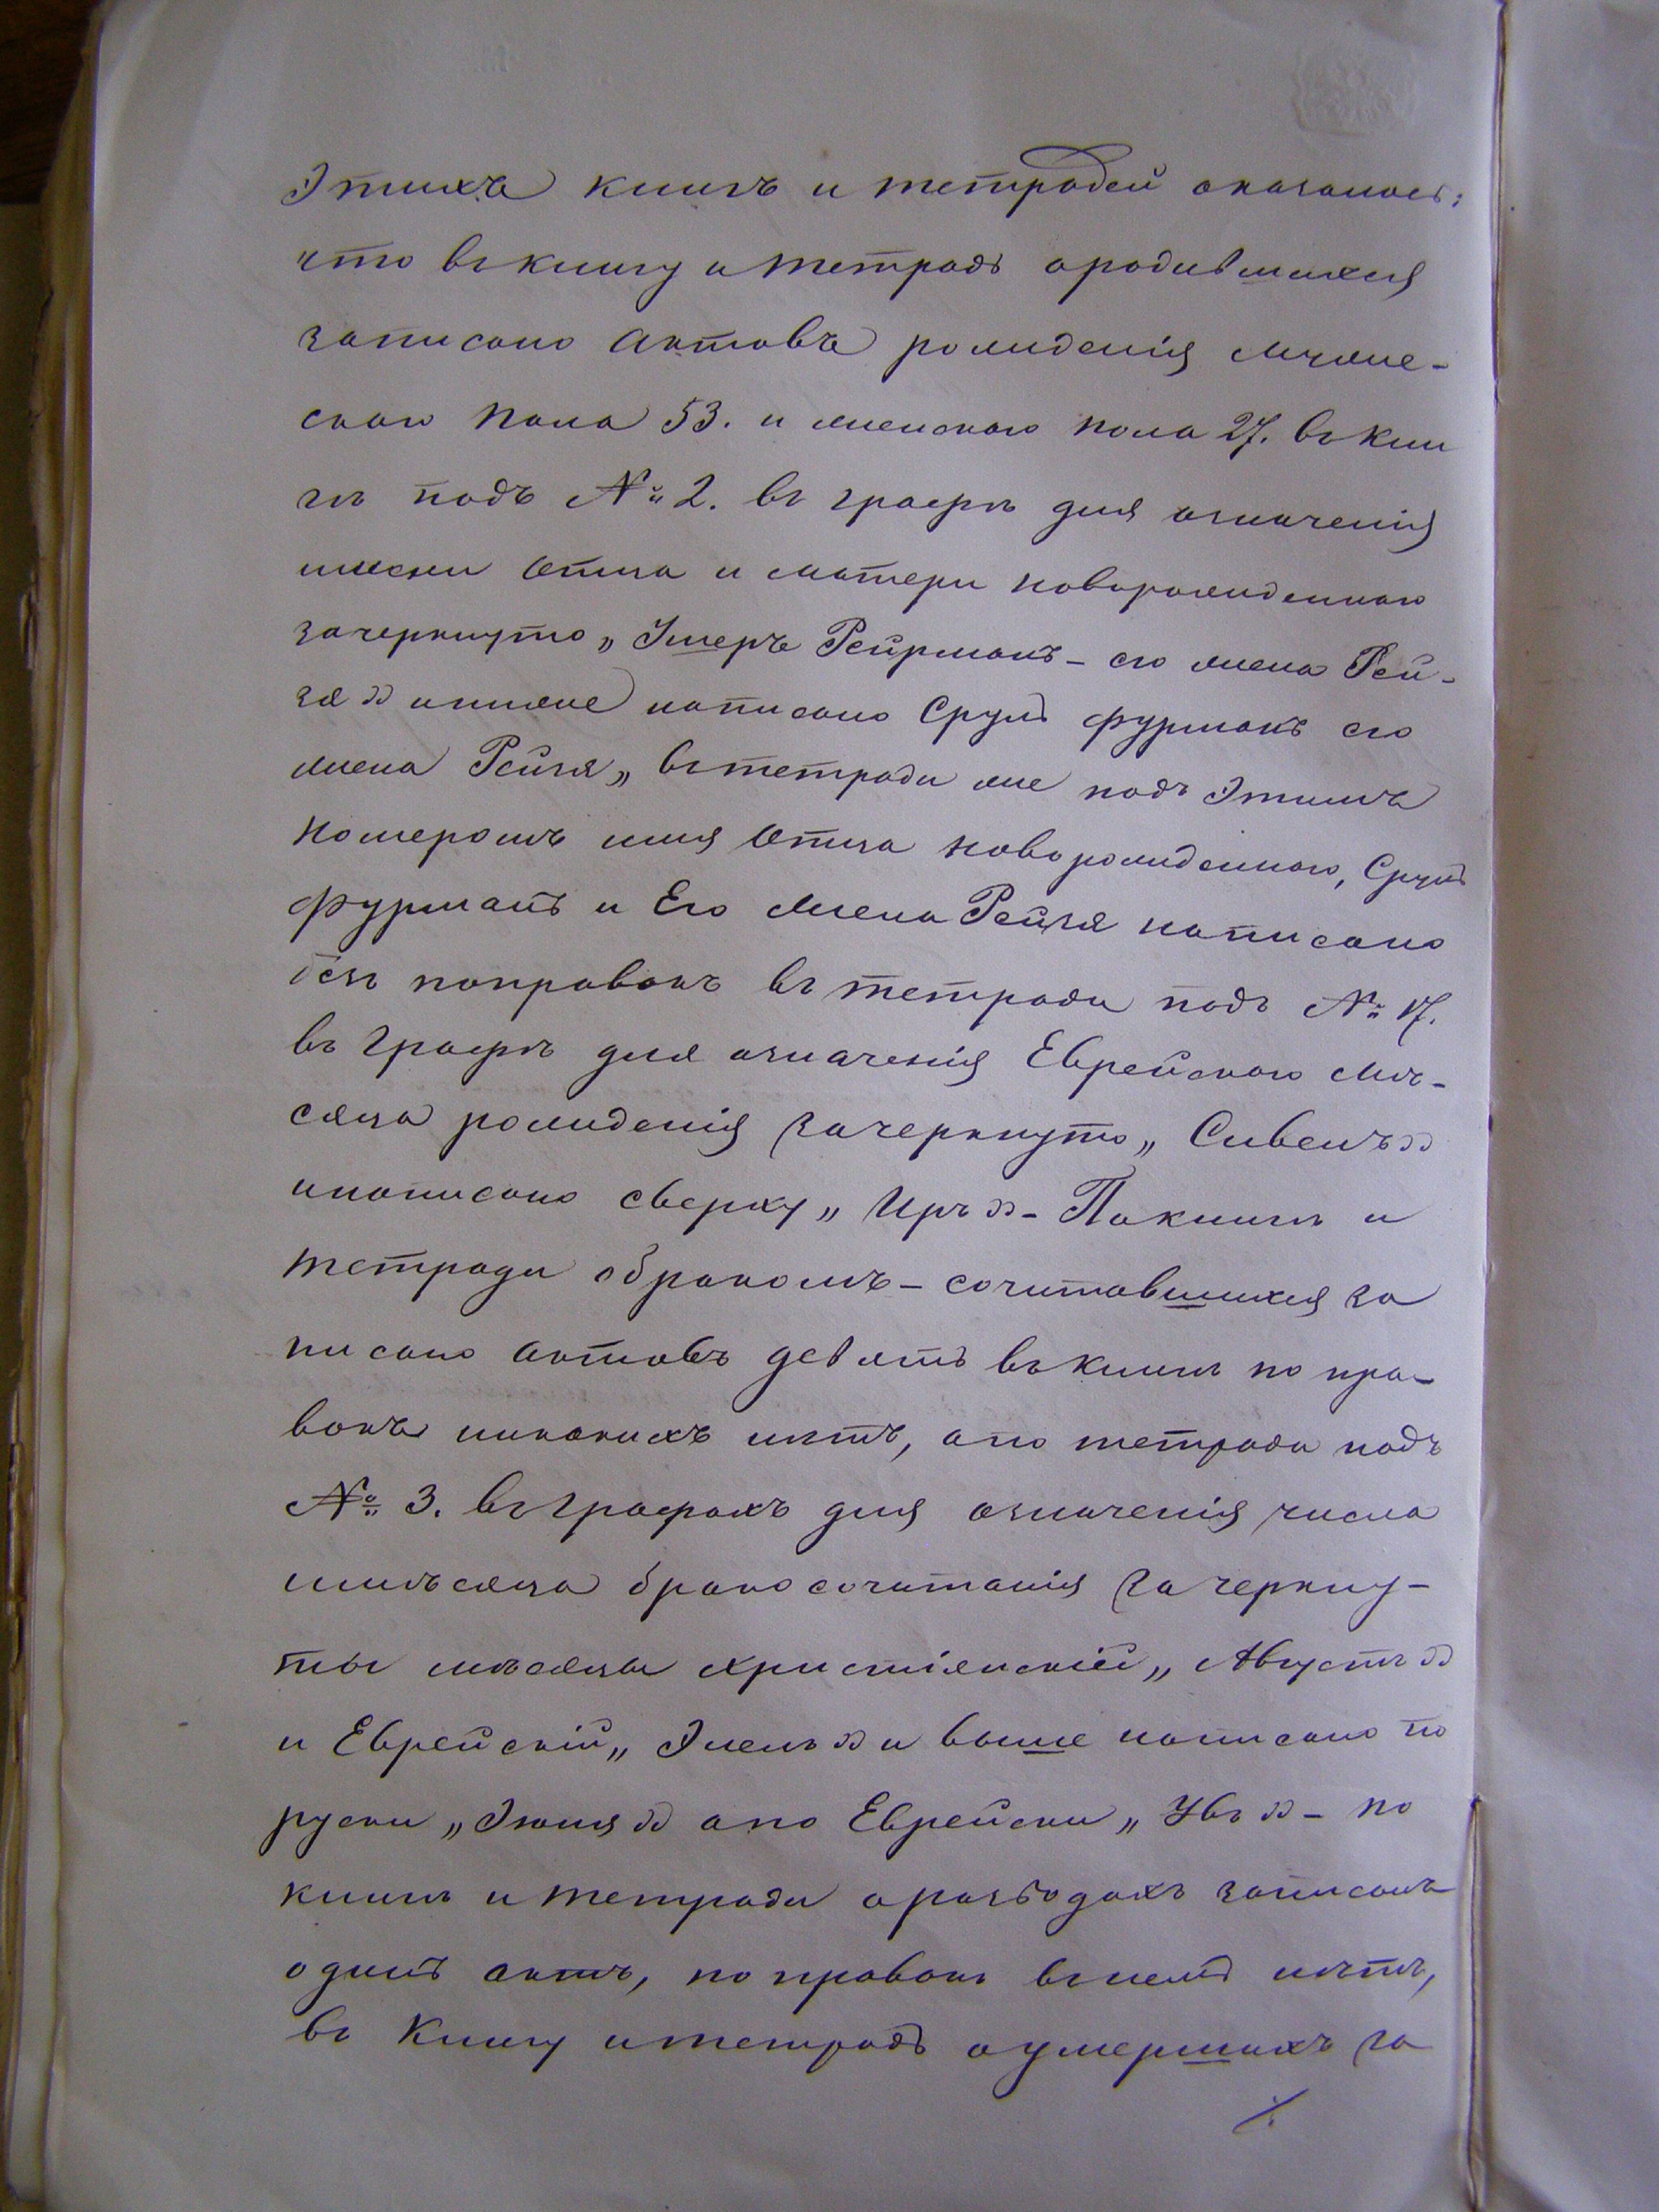 этихъ книгъ и тетрадей оказалось:
что въ книгу и тетрадь о родившихся
записано актовъ рожденія муже-
скаго пола 53. и женскаго пола 27. въ кни
гѣ подъ № 2. въ графѣ для означенія
имени отца и матери новорожденнаго
зачеркнуто „ Умеръ Рейрманъ - его жена Рей-
зя „ и ниже написано Сруль фурманъ его
жена Рейзя „ въ тетради же подъ этимъ
номеромъ имя отца новорожденнаго, Сруль
фурманъ и Его жена Рейзя написано
безъ поправокъ въ тетради подъ № 17.
въ графѣ для означенія Еврейскаго мѣ-
сяца рожденія зачеркнуто „ Сивенъ „
и написано сверху „ Иръ „ - По книгѣ и
тетради о бракомъ - сочитавшихся за
писано актовъ девять въ книгѣ по пра-
вокъ никакихъ нѣтъ, а по тетради подъ
№ 3. въ графахъ для означенія числа
и мѣсяца бракосочитанія зачеркну-
ты мѣсяцы христіянскій „ Августъ „
и Еврейскій „ Элелъ „ и выше написано по
руски „ Іюня „ а по Еврейски „ Увъ „ - по
книгѣ и тетради о разводахъ записанъ
одинъ актъ, по правокъ въ немъ нѣтъ,
въ Книгу и тетрадь о умершихъ за